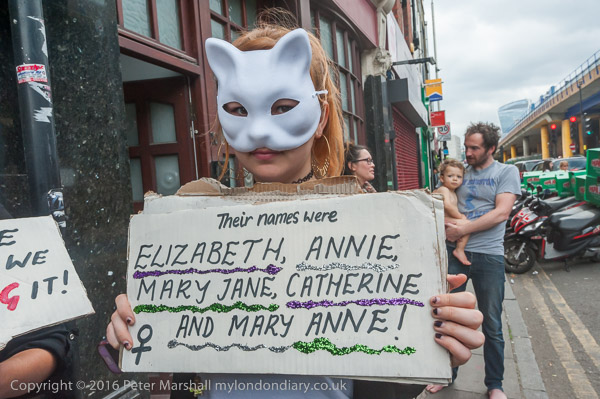 Their names were
ELIZABETH, ANNIE,
MARY JANE, CATHERINE
♀ AND MARY ANNE!
WE
G IT!
Copyright © 2016 Peter Marshall mylondondiary.co.uk